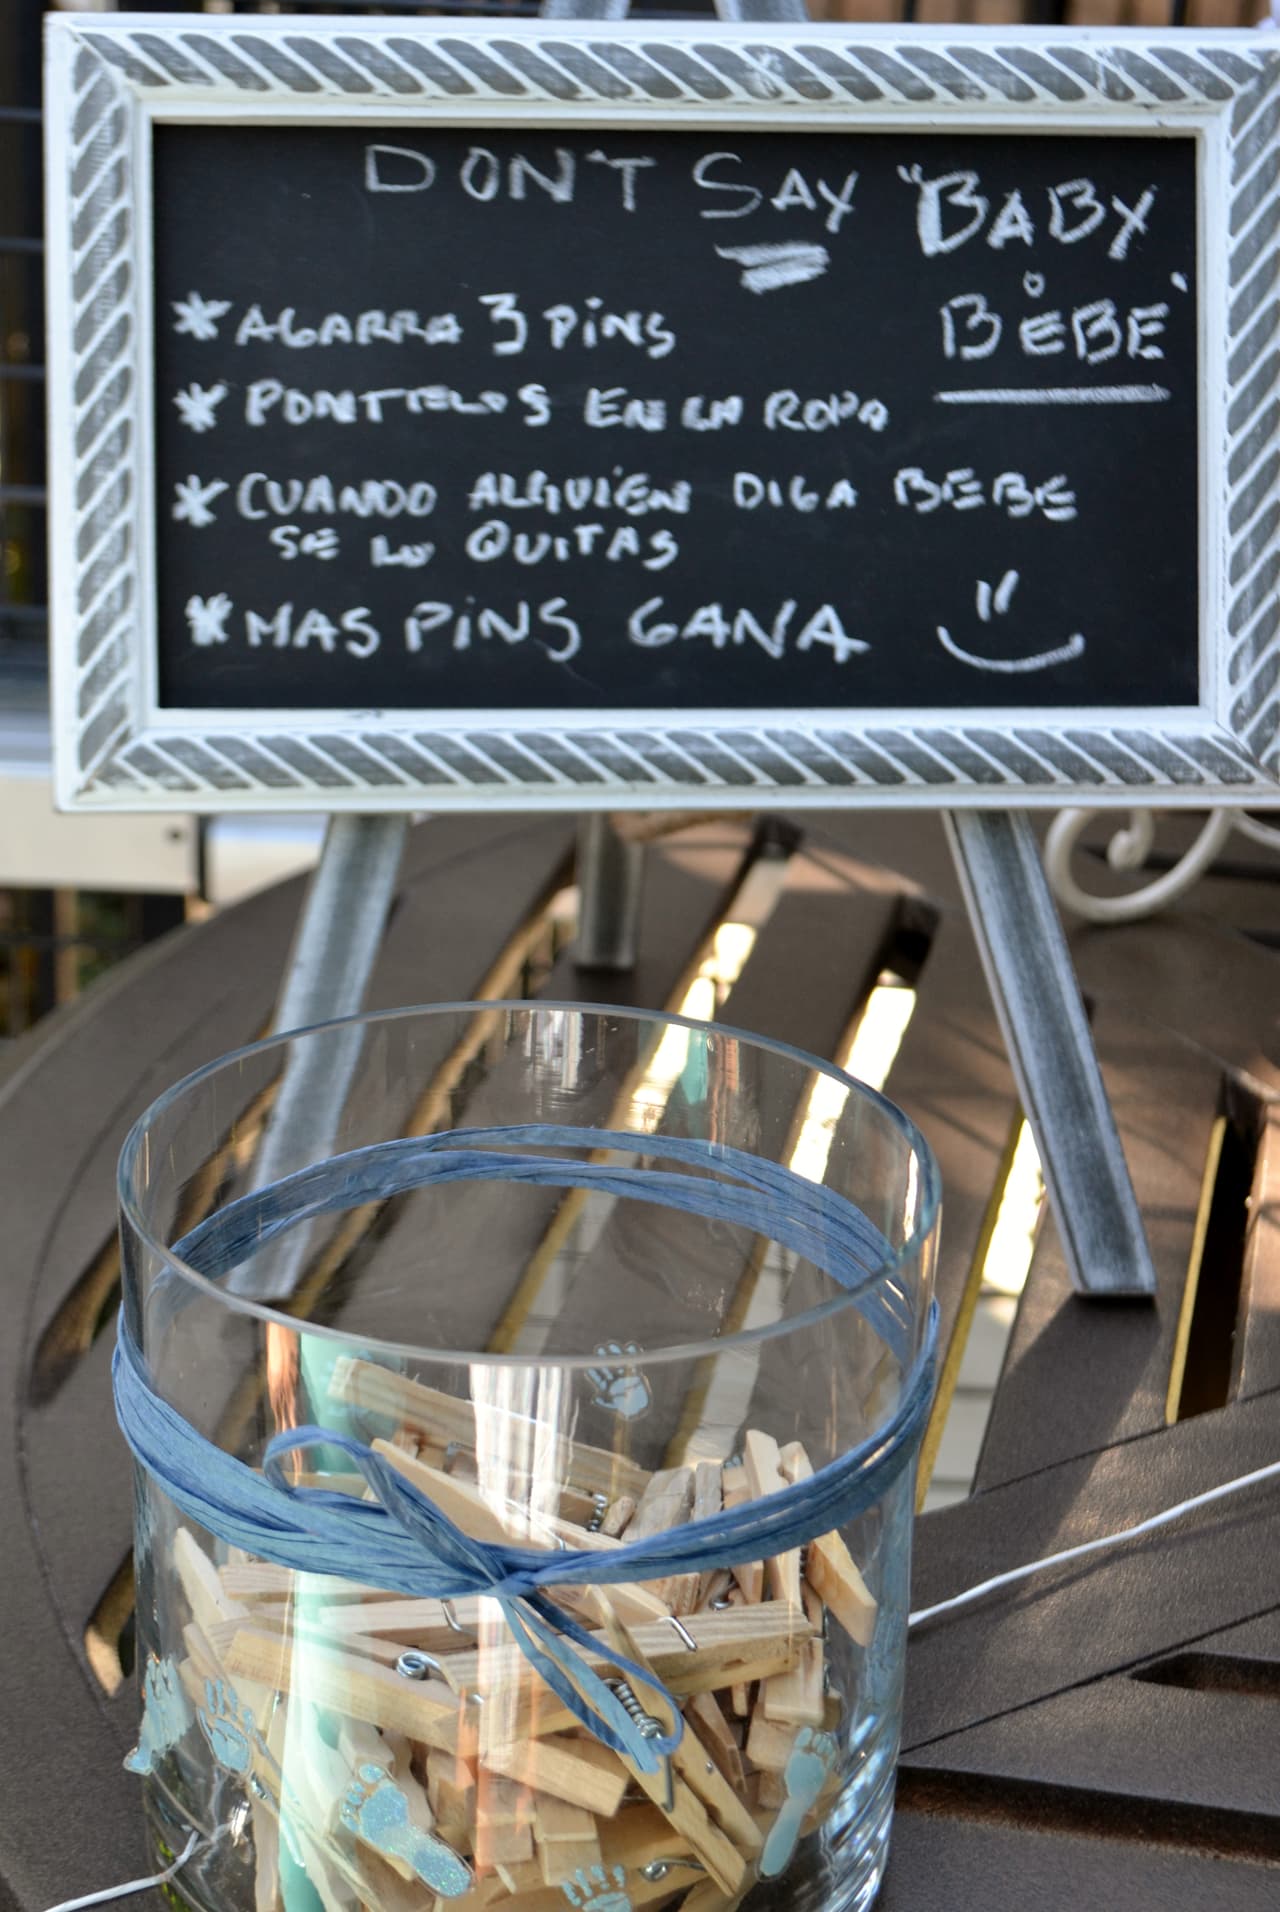 DON'T SAY "BABY
o
BEBE"
* AGARRA 3 PINS
* PONTELOS EN LA ROPA
* CUANDO ALGUIEN DIGA BEBE
SE LO QUITAS
* MAS PINS GANA